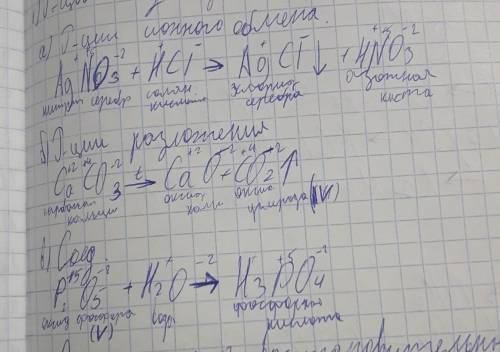 а) Р-ции ионного обмена.
+ +5 -2 + - + - + +5 -2
AgNO3 + HCl → AgCl↓ + HNO3
нитрат серебр соляная кислота хлорид серебра азотная кислота
б) Р-ции разложения
+2 +4 -2 +2 -2 +4 -2
CaCO3 t→ CaO + CO2↑
карбонат кальция оксид каль оксид углерода (IV)
в) Соед.
+5 -2 + -2 + +5 -2
P2O5 + H2O → H3PO4
оксид фосфора (V) вода фосфорная кислота